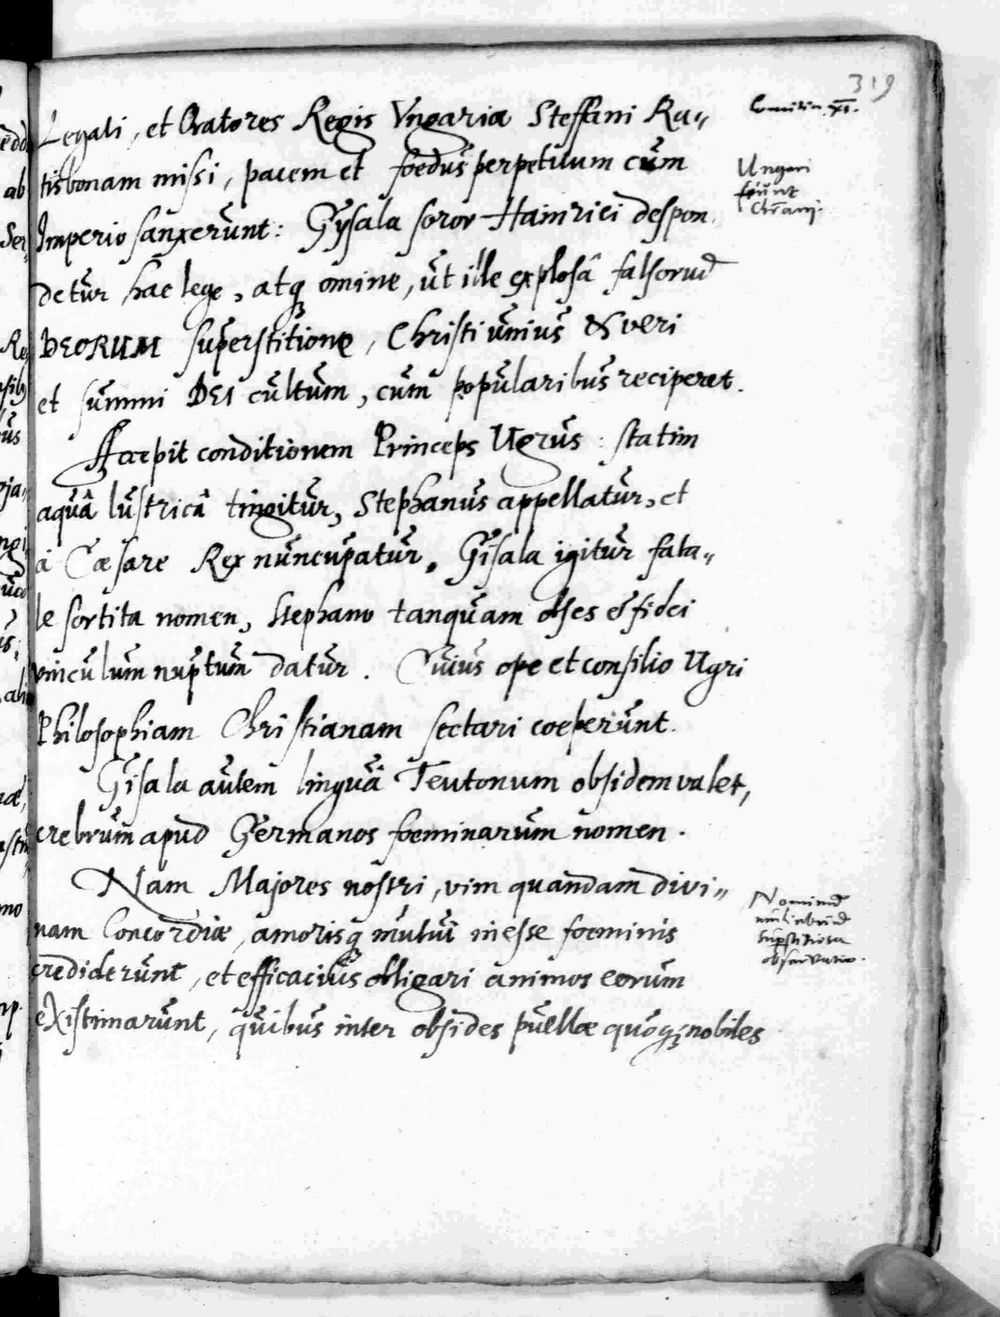 319
Comitia XI.
Legati, et Oratores Regis Vngariæ Steffani Ra„
tisbonam missi, pacem et foedus perpetuum cum
Ungari
fiunt
Chr̄ani.
Imperio sanxerunt: Gysala soror Hainrici despon
detur hac lege, atq omine, ut ille explosâ falsorū
DEORUM superstitione, Christi unius & veri
et summi DEI cultum, cum popularibus reciperet.
Accepit conditionem Princeps Ugrus: statim
aquâ lustricâ tingitur, Stephanus appellatur, et
à Cæsare Rex nuncupatur. Gisala igitur fata„
le sortita nomen, Stephano tanquam obses & fidei
vinculum nuptum datur. Cuius ope et consilio Ugri
Philosophiam Christianam sectari coeperunt.
Gisala autem linguâ Teutonum obsidem valet,
crebrum apud Germanos foeminarum nomen.
Nam Majores nostri, vim quandam divi„
Nominū
muliebriū
supstitiosa
observatio.
nam Concordiæ, amorisq mutui inesse foeminis
crediderunt, et efficacius obligari animos eorum
existimarunt, quibus inter obsides puellæ quoq; nobiles